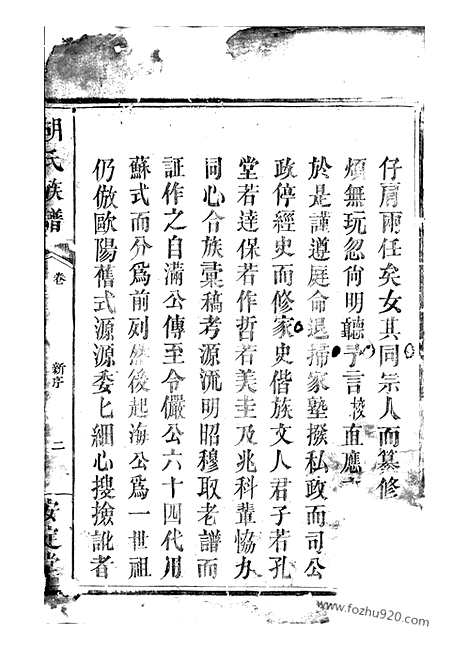 仔肩兩任矣女其同宗人而纂修
煩無玩忽尚明聽予言㧞直應
於是謹遵庭命退掃家塾撥私政而司公
政停經史而修家史偕族文人君子若孔
堂若達保若作哲若美圭及兆科輩恊力
同心合族彙稿考源流明昭穆取老譜而
証作之自滿公傳至令儼公六十四代用
蘇式而分爲前列然後起海公爲一世祖
仍倣歐陽舊式源源委七細心搜撿訛者
胡氏族譜
卷
新序
二
安定堂
www.fozhu920.com